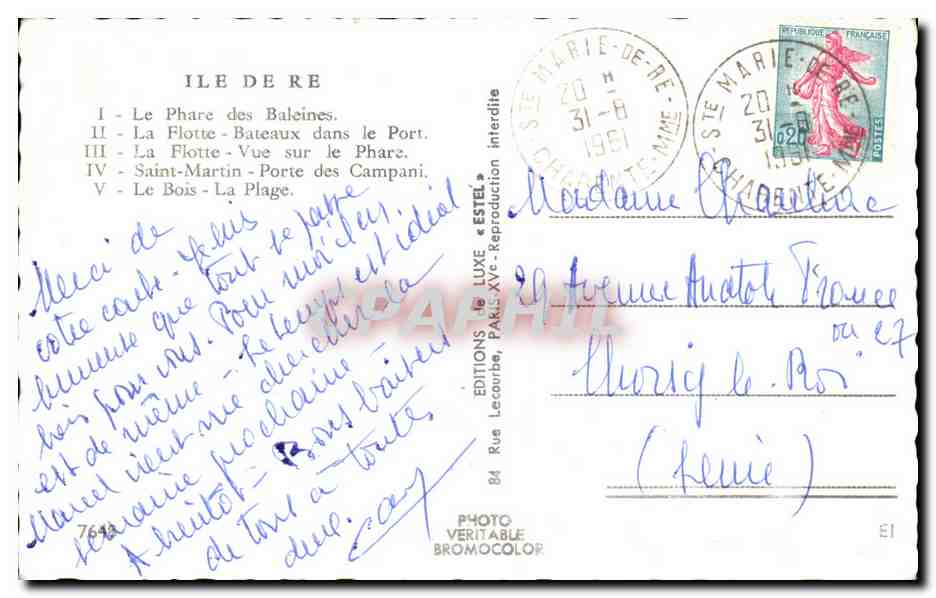 ILE DE RE
I - Le Phare des Baleines.
II - La Flotte - Bateaux dans le Port.
III - La Flotte - Vue sur le Phare.
IV - Saint-Martin - Porte des Campani.
V - Le Bois - La Plage.
Merci de
votre carte - Je suis
heureuse que tout se passe
bien pour vous. Pour moi il en
est de même - Le temps est idéal
Marcel vient me chercher la
semaine prochaine -
A bientôt - Bons baisers
de tous à toutes
deux.
7648
EDITIONS de LUXE « ESTEL »
84 Rue Lecourbe, PARIS-XVe - Reproduction interdite
PHOTO
VERITABLE
BROMOCOLOR
CPAPHIL
STE MARIE-DE-RE
20 H
31-8
1961
CHARENTE-MME
STE MARIE-DE-RE
20 H
31-8
1961
CHARENTE-MME
REPUBLIQUE FRANÇAISE
0,20
POSTES
Madame
29 Avenue Anatole France
ou 27
Choisy le Roi
(Seine)
EI